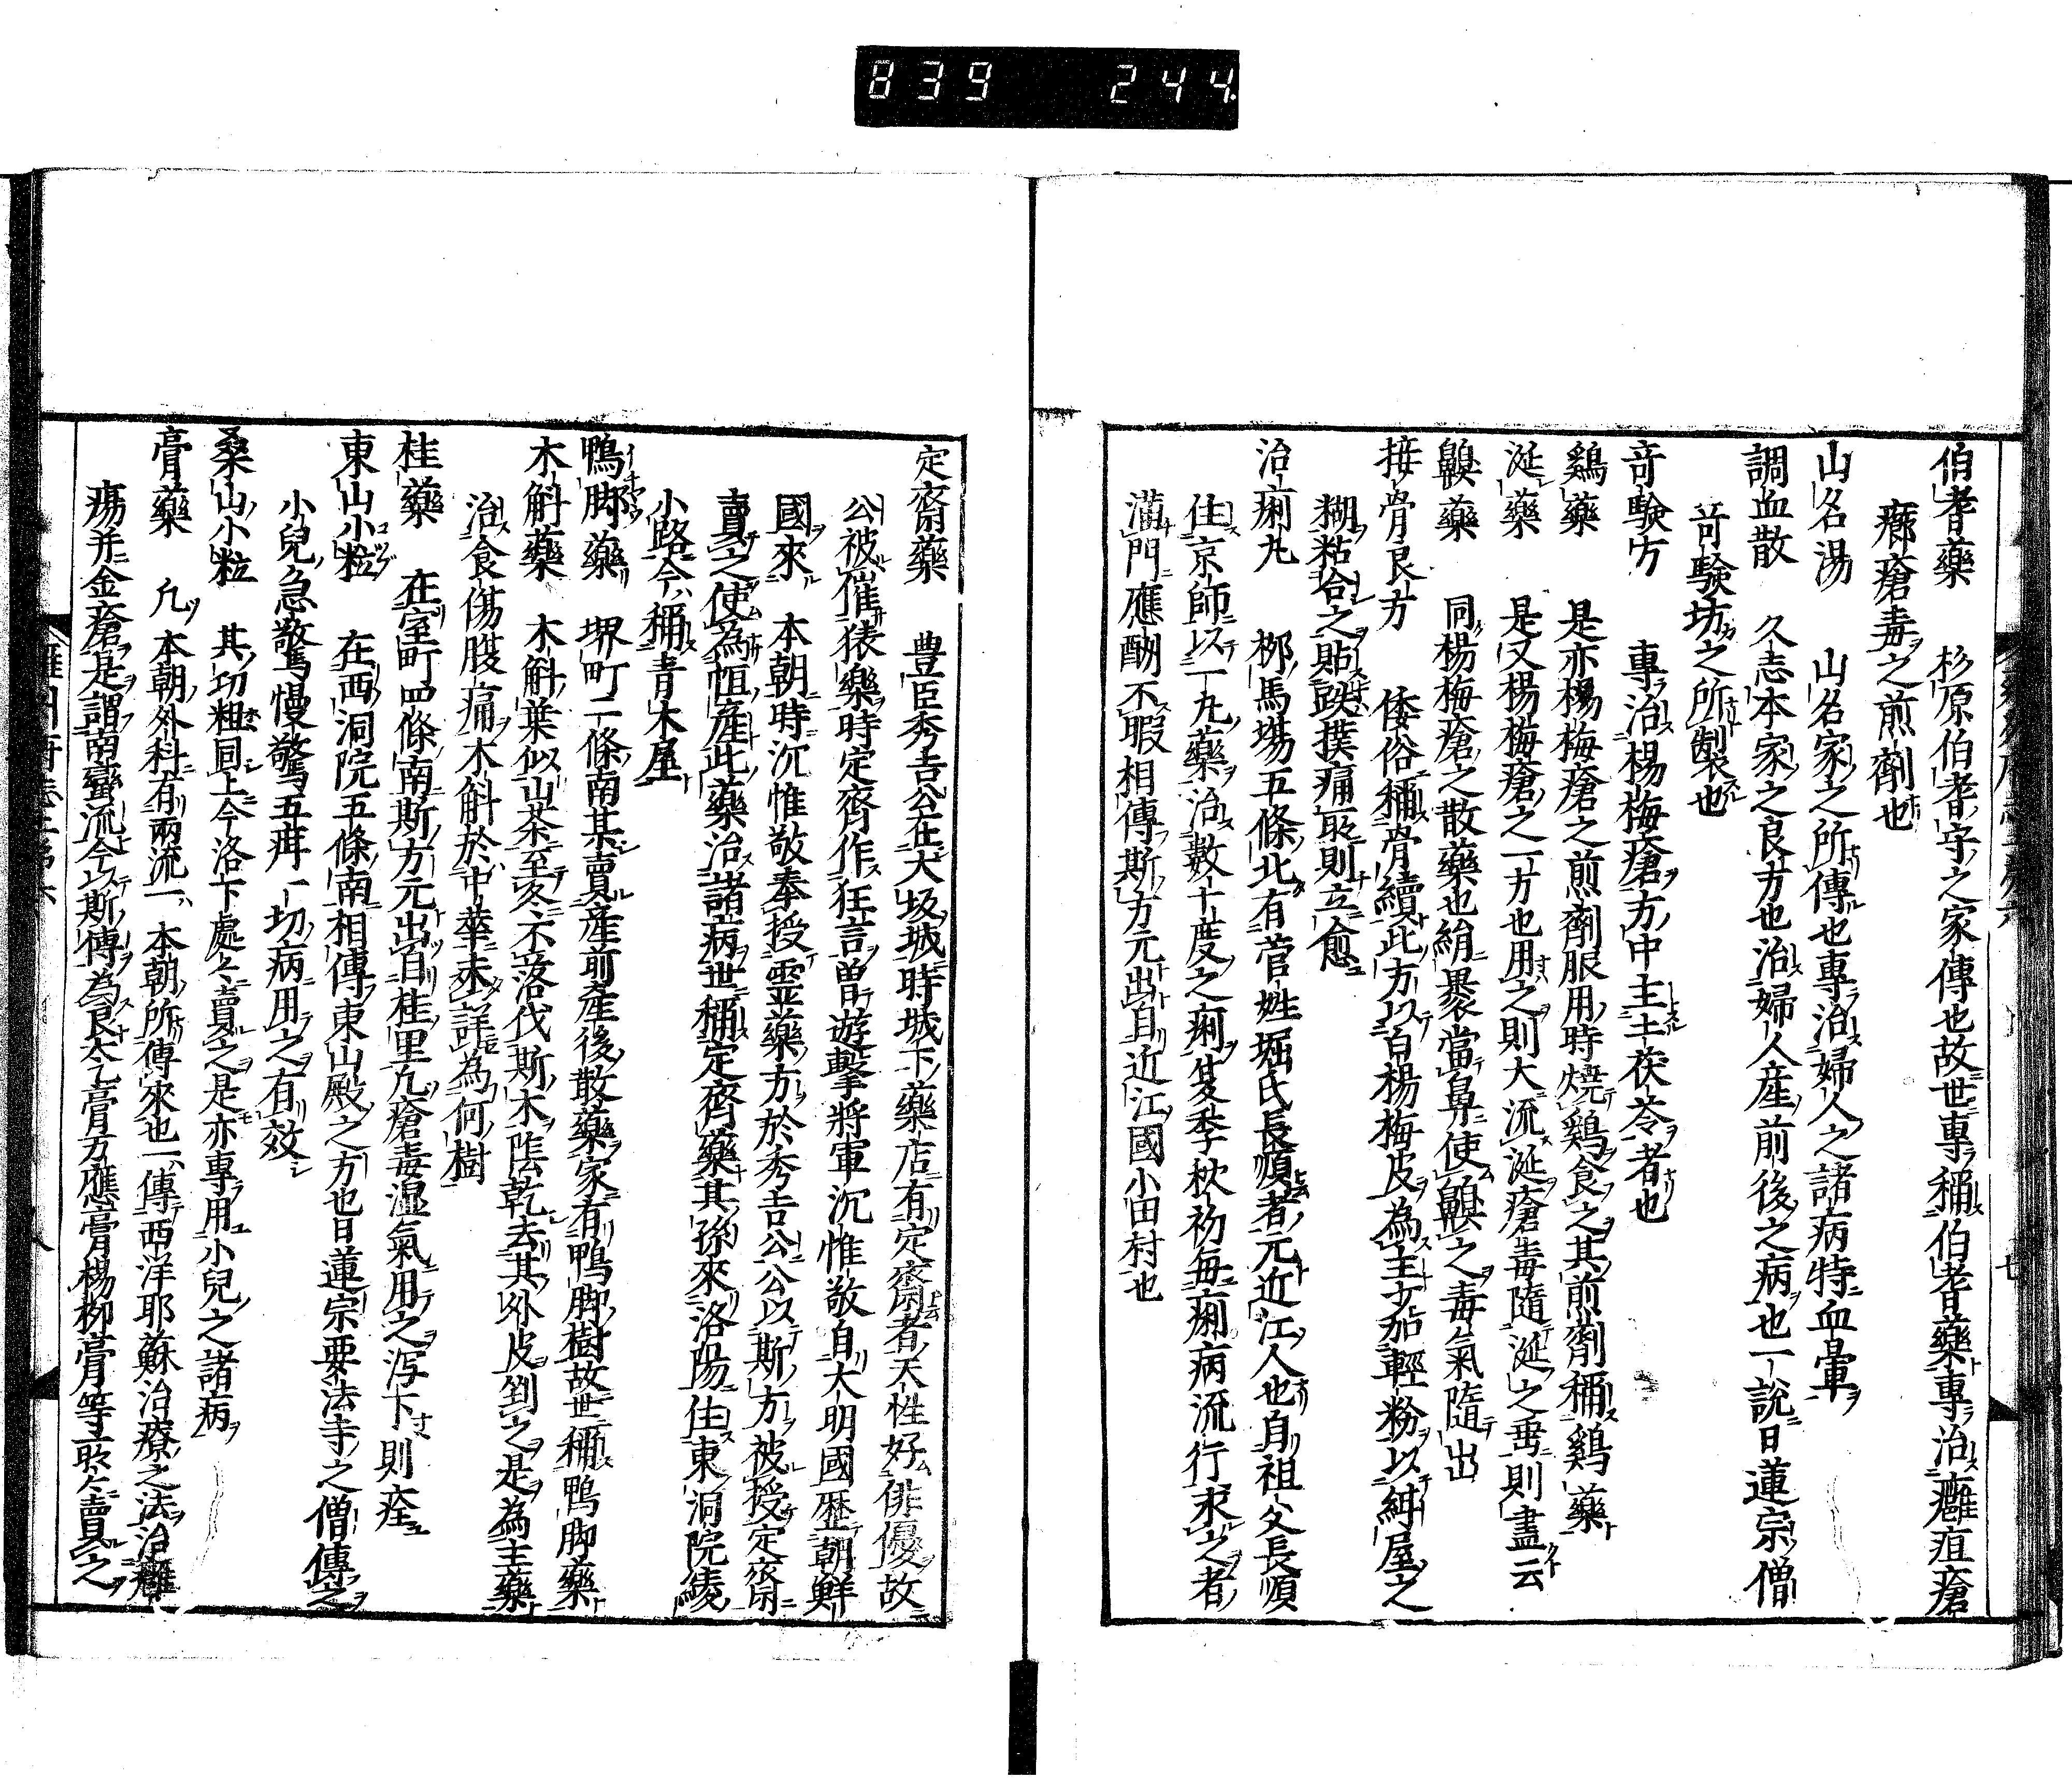 839 244
伯耆藥 杉原伯耆守之家傳也故世專稱伯耆藥專治癰疽瘡
癤瘡毒之煎劑也
山名湯 山名家之所傳也專治婦人之諸病特血暈
調血散 久志本家之良方也治婦人產前後之病也一說日蓮宗僧
竒験坊之所製也
竒験方 專治楊梅瘡方中主土茯苓者也
鷄藥 是亦楊梅瘡之煎劑服用時燒鷄食之其煎劑稱鷄藥
涎藥 是又楊梅瘡之一方也用之則大流涎瘡毒隨涎之垂則盡云
齅藥 同楊梅瘡之散藥也絹裹當鼻使齅之毒氣隨出
接骨良方 倭俗稱骨續此方以百楊梅皮為主加輕粉以紺屋之
糊粘合之貼跌撲痛㪅則立愈
治痢丸 栁馬場五條北有菅姓堀氏長順者元近江人也自祖父長順
住京師以一丸藥治數十度之痢夏季秋初每痢病流行求之者
滿門應酬不暇相傳斯方元出自近江國小田村也
定齋藥 豊臣秀吉公在大坂城時城下藥店有定齋者天性好俳優故
公被催猿樂時定齊作狂言曽遊擊將軍沉惟敬自大明國歷朝鮮
國來 本朝時沉惟敬奉授霊藥方於秀吉公公以斯方被授定齋
賣之使為恒產此藥治諸病世稱定齊藥其孫來洛陽住東洞院綾
小路今稱青木屋
鴨脚藥 堺町二條南某賣產前產後散藥家有鴨脚樹故世稱鴨脚藥
木斛藥 木斛葉似山茶至冬不落伐斯木陰乾去其外皮剉之是為主藥
治食傷腹痛木斛於中華未詳為何樹
桂藥 在室町四條南斯方元出自桂里凢瘡毒湿氣用之泻下則痊
東山小粒 在西洞院五條南相傳東山殿之方也日蓮宗要法寺之僧傳之
小兒急驚慢驚五疳一切病用之有效
桑山小粒 其功粗同上今洛下處々賣之是亦專用小兒之諸病
膏藥 凢 本朝外科有兩流一 本朝所傳來也一傳西洋耶蘇治療之法治癰
瘍并金瘡是謂南蠻流今以斯傳為良太乙膏万應膏楊栁膏等㪅々賣之